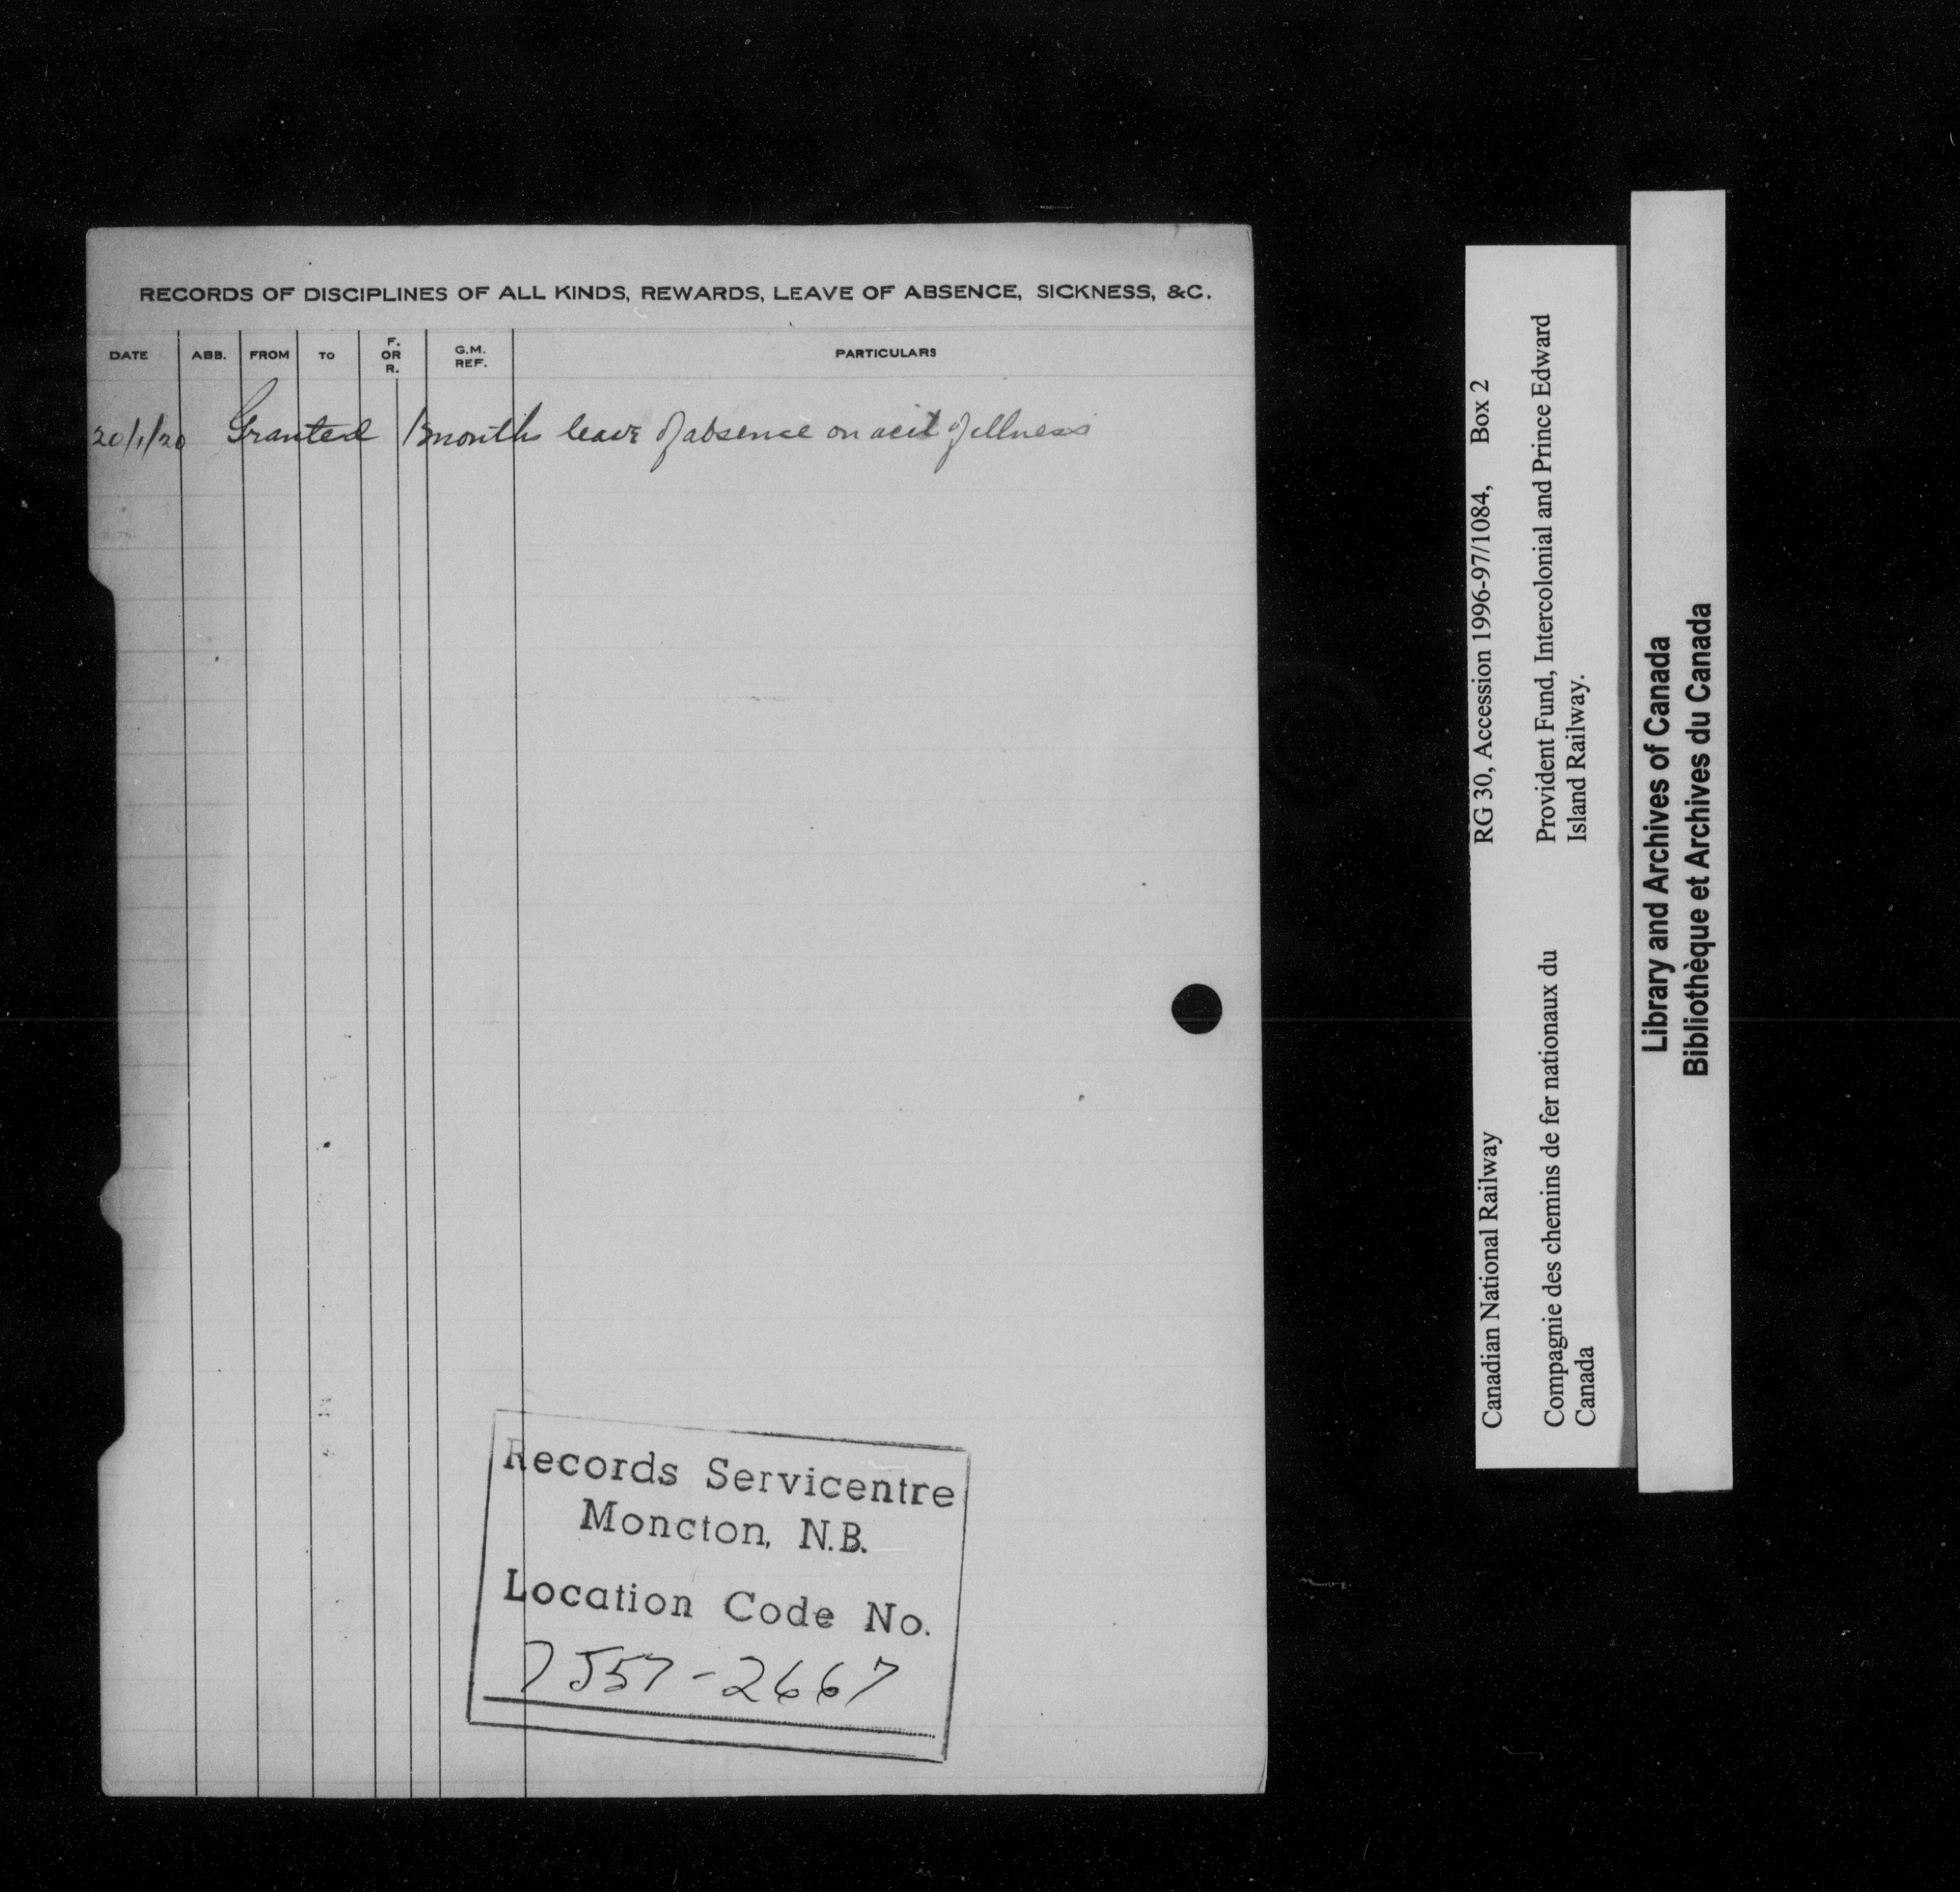 RECORDS OF DISCIPLINES OF ALL KINDS, REWARDS, LEAVE OF ABSENCE, SICKNESS, &C.
DATE ABB. FROM TO F. OR R. G.M. REF. PARTICULARS
20/1/20 Granted month leave of absence on acct of illness
Records Servicentre
Moncton, N.B.
Location Code No.
7557-2667
Canadian National Railway RG 30, Accession 1996-97/1084, Box 2
Compagnie des chemins de fer nationaux du Provident Fund, Intercolonial and Prince Edward
Canada Island Railway.
Library and Archives of Canada
Bibliothèque et Archives du Canada